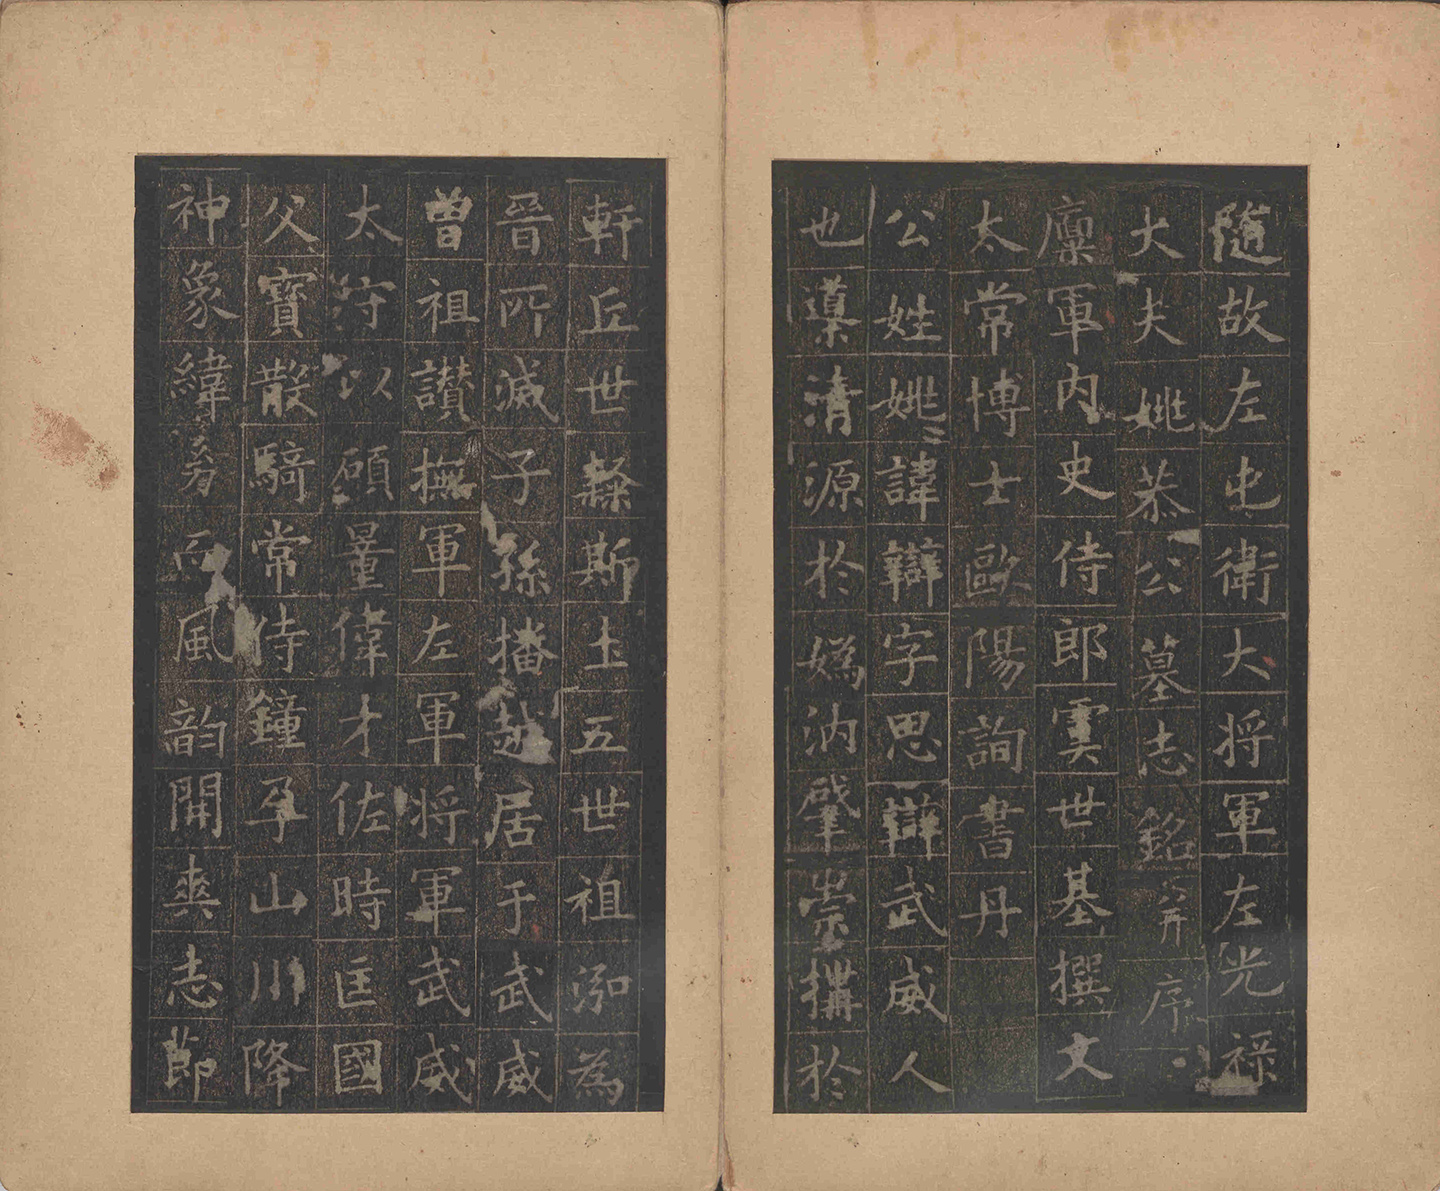 隨故左屯衛大将軍左光祿
大夫姚恭公墓志銘并序
稟軍内史侍郎虞世基撰文
太常博士歐陽詢書丹
公姓姚諱辯字思辯武威人
也導清源於媯汭肇崇搆於
軒丘世繇斯土五世祖泓為
晉所滅子孫播越居于武威
曾祖讃撫軍左軍将軍武威
太守以碩量偉才佐時匡國
父寶散騎常侍鐘孕山川降
神象緯
風韵開爽志節